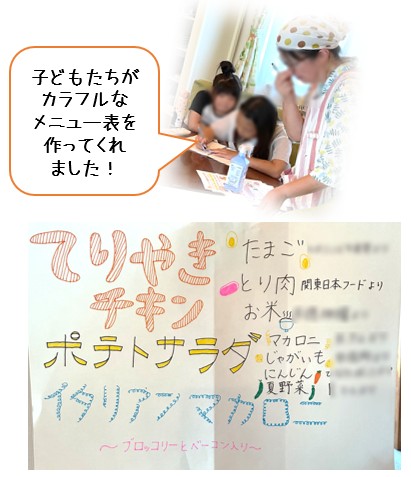 子どもたちが
カラフルな
メニュー表を
作ってくれ
ました！
てりやき
チキン
ポテトサラダ
イタリアンマカロニー
〜ブロッコリーとベーコン入り〜
たまご
とり肉 関東日本フードより
お米
マカロニ
じゃがいも
にんじん
夏野菜